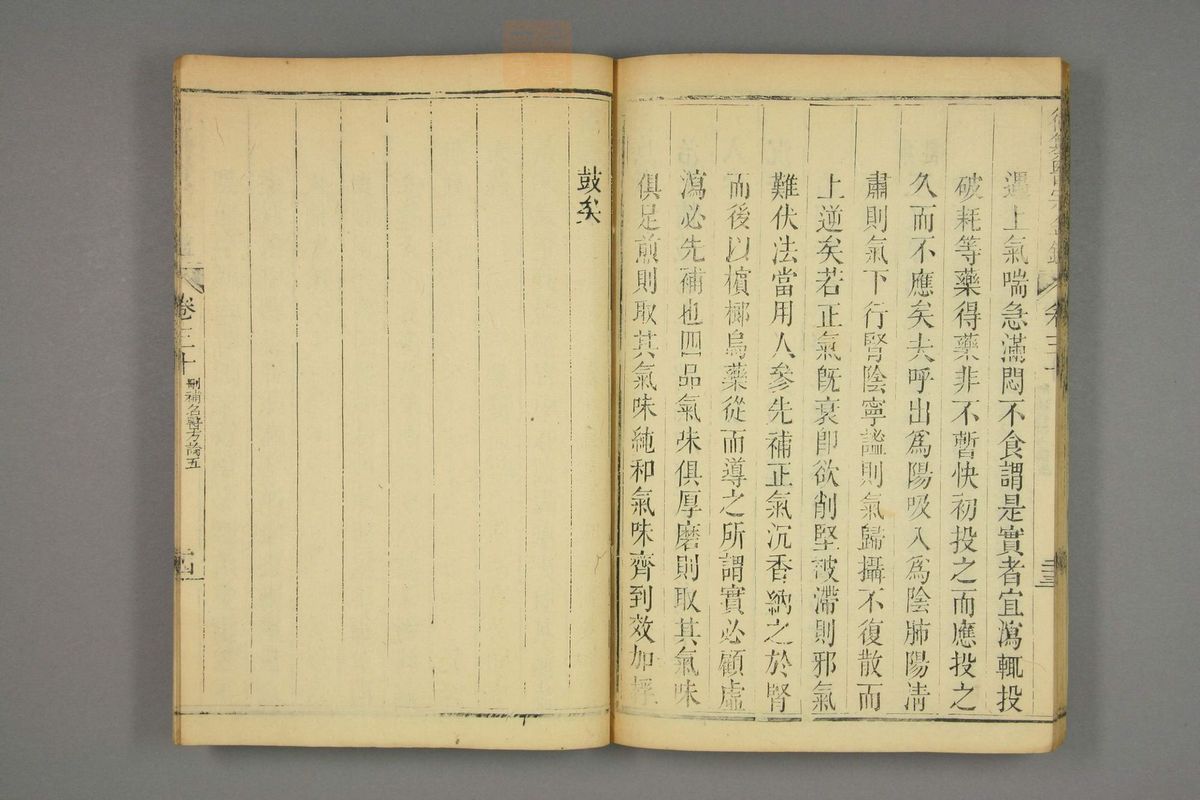 遇上氣喘急滿悶不食謂是實者宜瀉輒投
破耗等藥得藥非不暫快初投之而應投之
久而不應矣夫呼出爲陽吸入爲陰肺陽清
肅則氣下行腎陰寧謐則氣歸攝不復散而
上逆矣若正氣旣衰卽欲削堅破滯則邪氣
難伏法當用人參先補正氣沉香納之於腎
而後以檳榔烏藥從而導之所謂實必顧虛
瀉必先補也四品氣味俱厚磨則取其氣味
俱足煎則取其氣味純和氣味齊到效如桴
鼓矣
卷三十
刪補名醫方論五